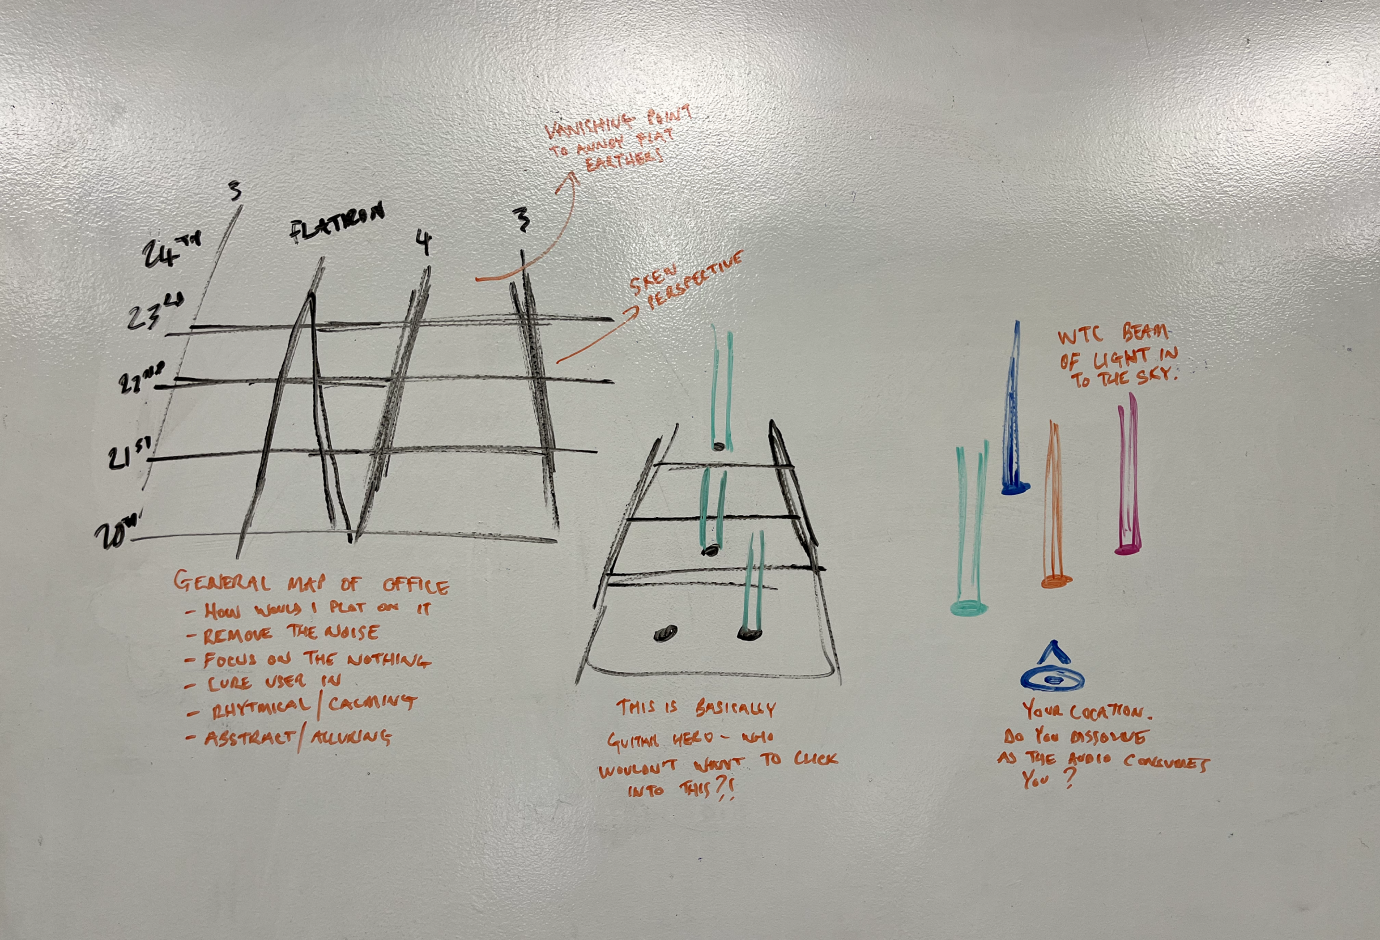 VANISHING POINT
TO ANNOY FLAT
EARTHERS
5
FLATIRON
4
3
24TH
23RD
22ND
21ST
20TH
SKEW
PERSPECTIVE
GENERAL MAP OF OFFICE
- HOW WOULD I PLAT ON IT
- REMOVE THE NOISE
- FOCUS ON THE NOTHING
- LURE USER IN
- RHYTMICAL/CALMING
- ABSTRACT/ALLURING
THIS IS BASICALLY
GUITAR HERO - WHO
WOULDN'T WANT TO CLICK
INTO THIS?!
WTC BEAM
OF LIGHT IN
TO THE SKY.
YOUR LOCATION.
DO YOU DISSOLVE
AS THE AUDIO CONSUMES
YOU?